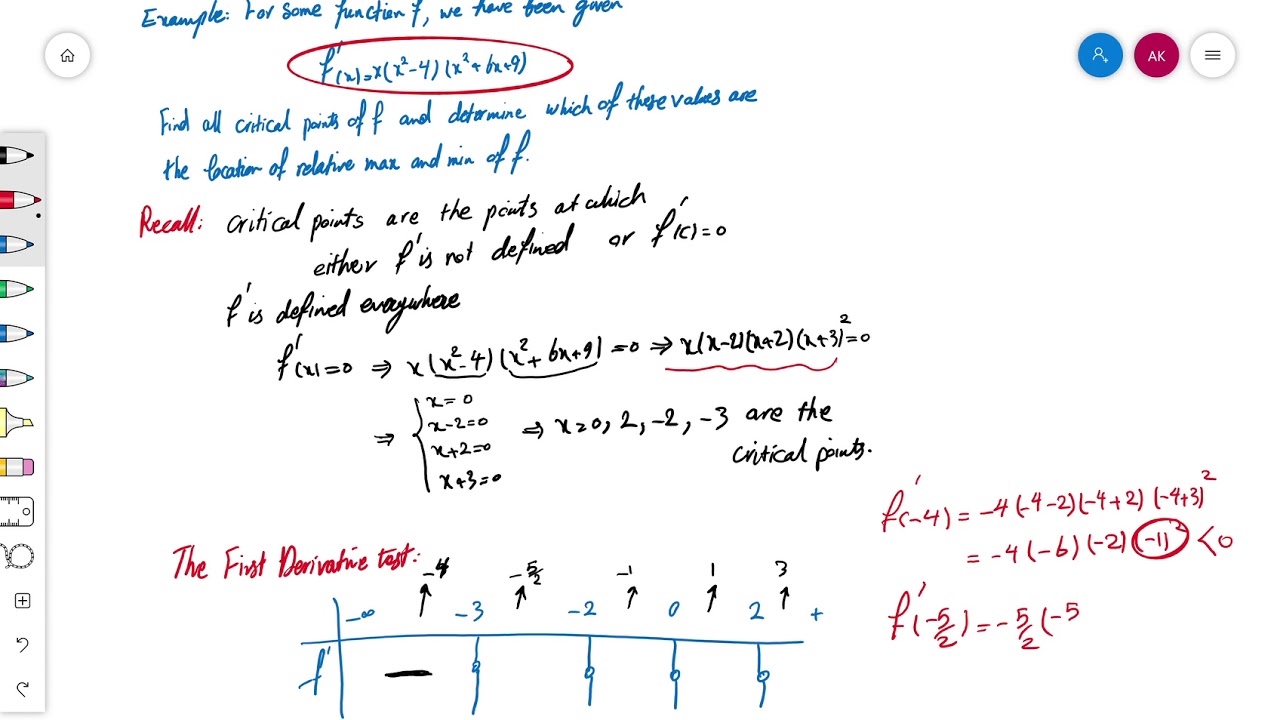 Example: For some function f, we have been given
f'(x)=x(x²-4)(x²+6x+9)
Find all critical points of f and determine which of these values are
the location of relative max and min of f.
Recall: critical points are the points at which
either f' is not defined or f'(c)=0
f' is defined everywhere
f'(x)=0 ⇒ x(x²-4)(x²+6x+9)=0 ⇒ x(x-2)(x+2)(x+3)²=0
⇒ { x=0
x-2=0
x+2=0
x+3=0
⇒ x=0, 2, -2, -3 are the
critical points.
f'(-4) = -4(-4-2)(-4+2)(-4+3)²
= -4(-6)(-2)(-1)² < 0
f'(-5/2) = -5/2(-5
The First Derivative test:
-4 -5/2 -1 1 3
-∞ ↑ -3 ↑ -2 ↑ 0 ↑ 2 ↑ +
f' — 0 0 0 0
AK